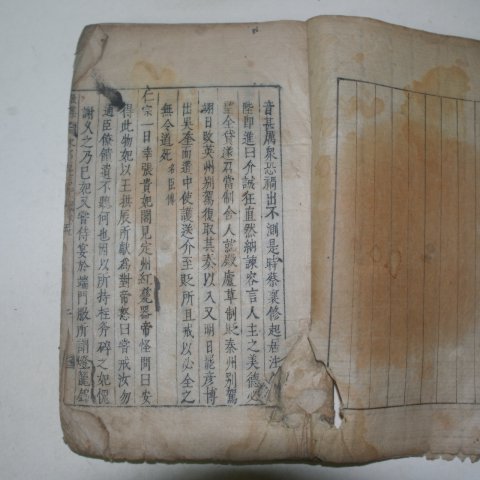 音甚厲衆恐禍出不測是時蔡襄修起居注
陛即進曰介誠狂直然納諫容言人主之美德必
望全貸遂召當制舍人就殿廬草制貶秦州别駕
翊日改英州别駕復取其奏以入又明日罷彦博
出吳奎而遣中使護送介至貶所且戒以必全之
無令道死 名臣傳
仁宗一日幸張貴妃閣見定州紅甆器帝怪問曰安
得此物妃以王拱辰所獻爲對帝怒曰嘗戒汝勿
通臣僚饋遺不聽何也因以所持柱斧碎之妃愧
謝久之乃已妃又嘗侍宴於端門服所謂燈籠錦